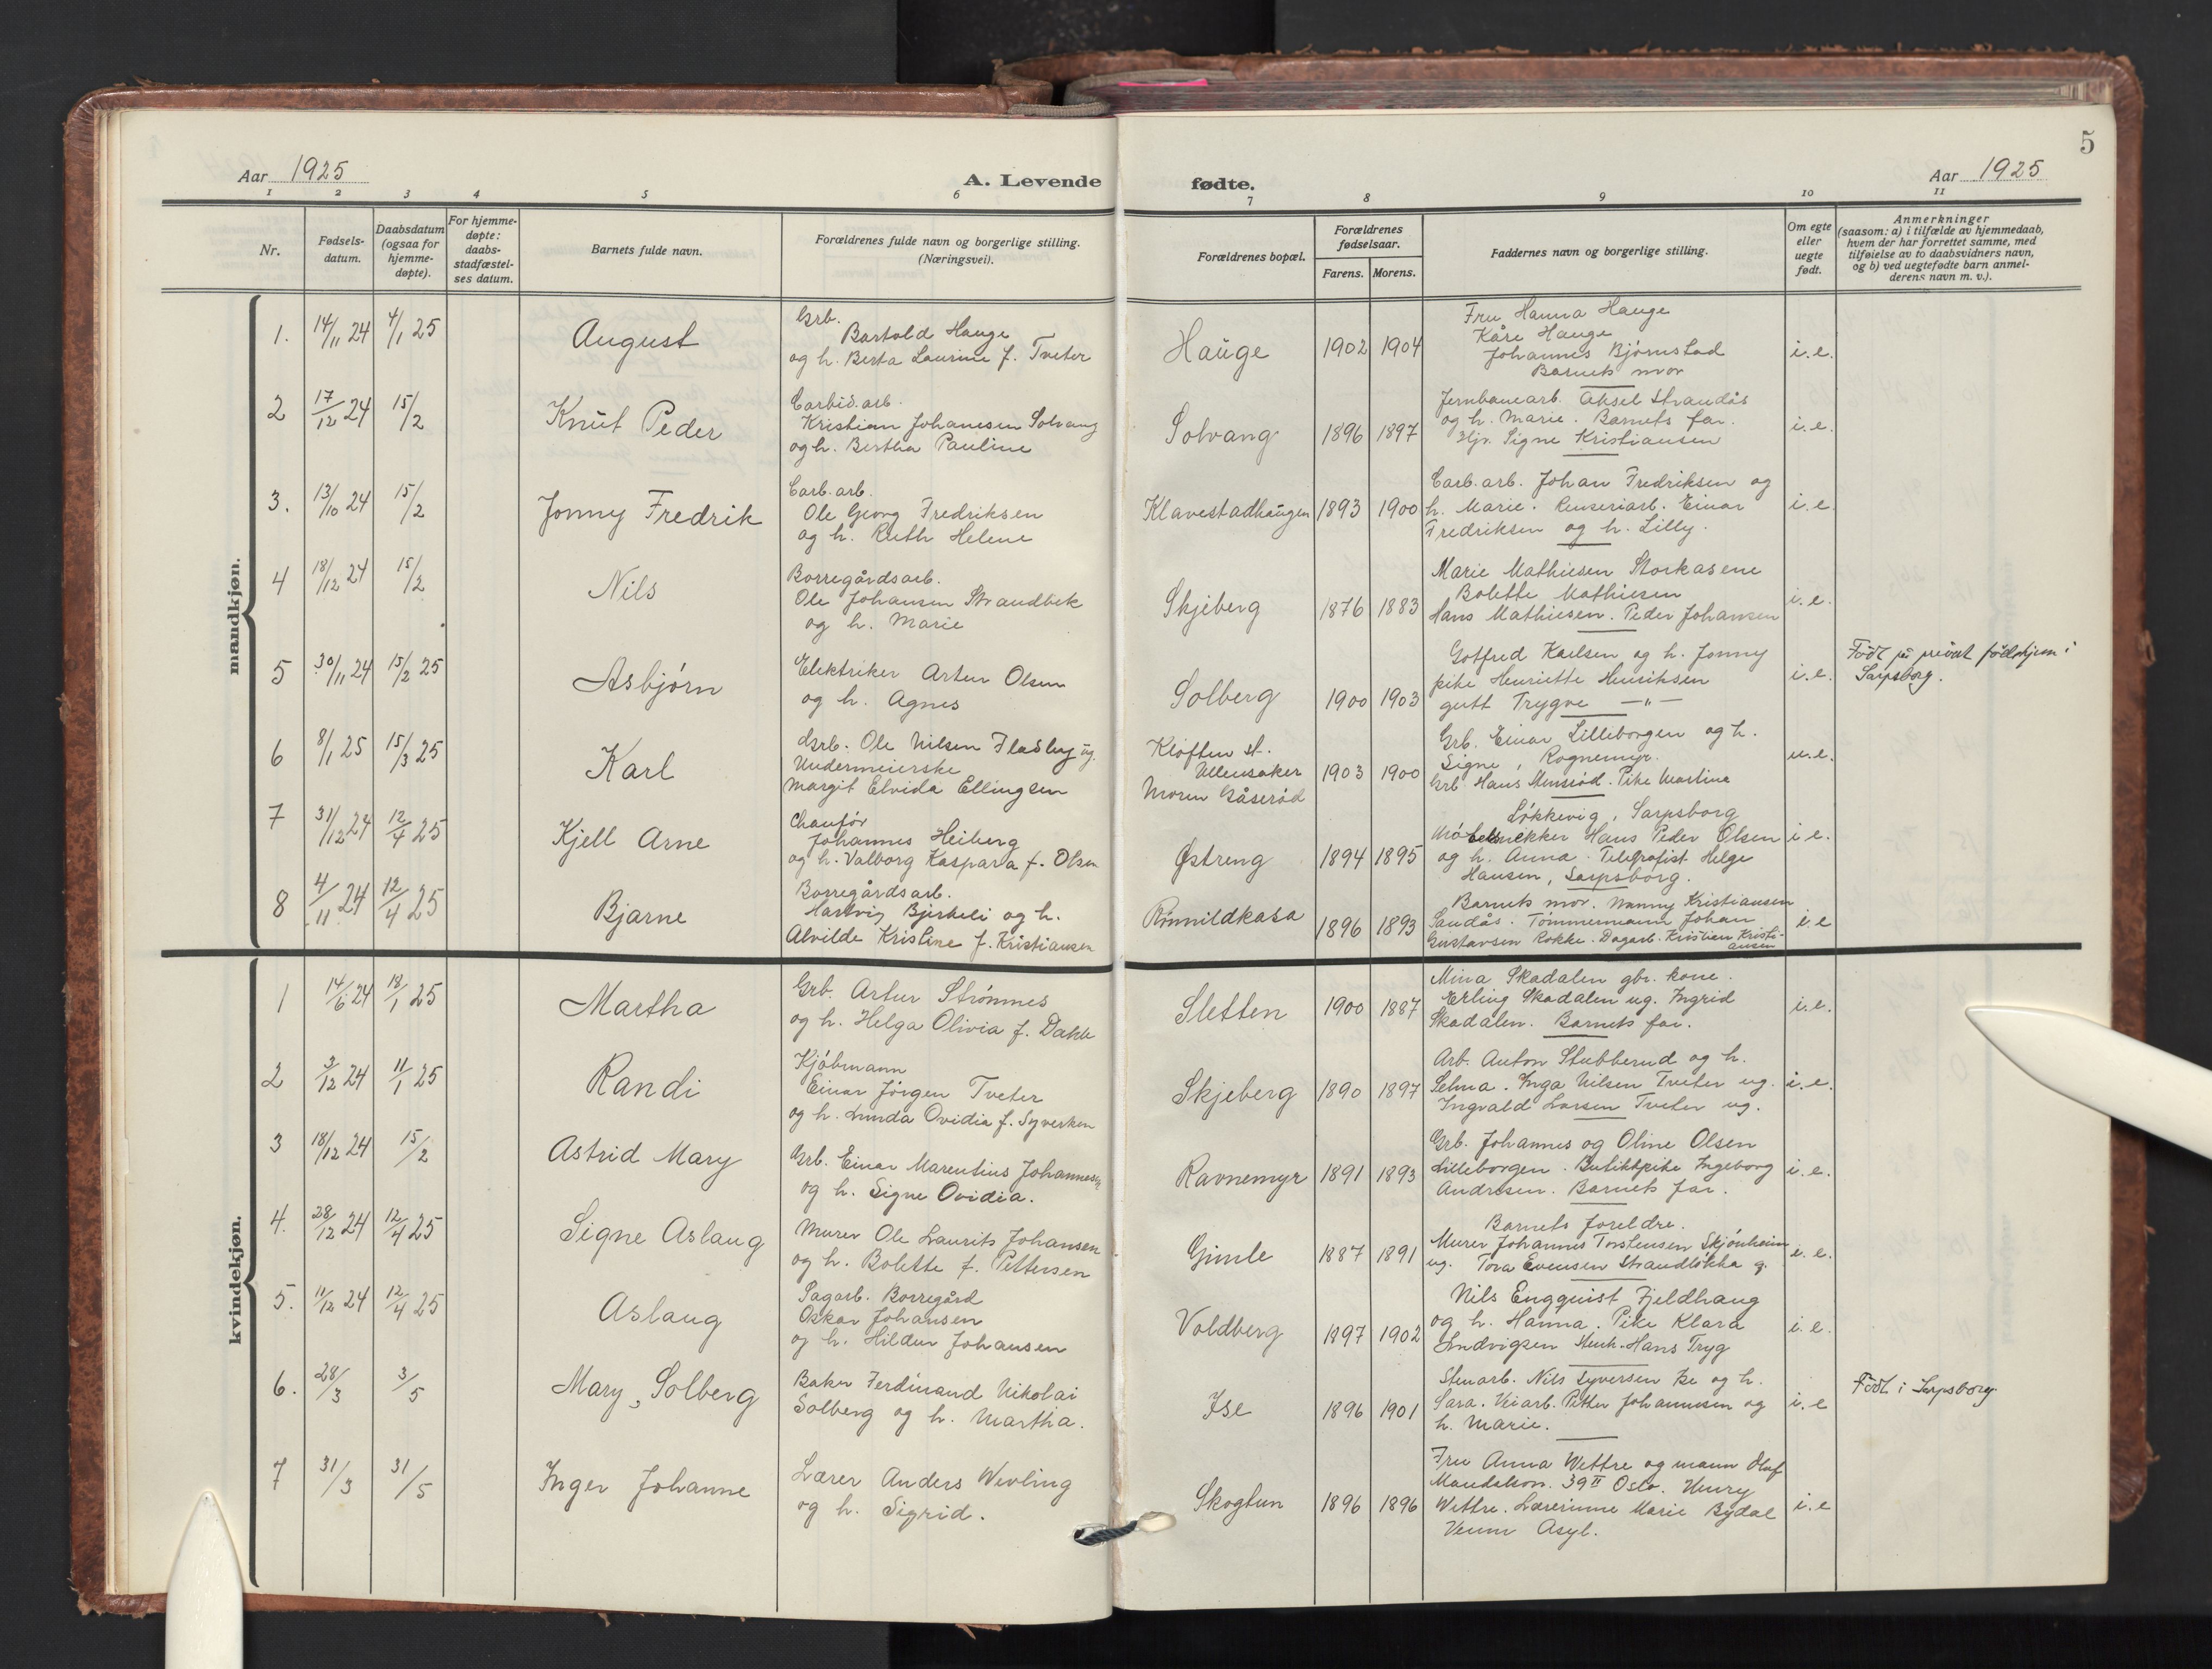 5
Aar 1925
A. Levende
fødte.
Aar 1925
1 2 3 4 5 6 7 8 9 10 11
Nr.
Fødsels-
datum.
Daabsdatum
(ogsaa for
hjemme-
døpte).
For hjemme-
døpte:
daabs-
stadfæstel-
ses datum.
Barnets fulde navn.
Forældrenes fulde navn og borgerlige stilling.
(Næringsvei).
Forældrenes bopæl.
Forældrenes
fødselsaar.
Farens. Morens.
Faddernes navn og borgerlige stilling.
Om egte
eller
uegte
født.
Anmerkninger
(saasom: a) i tilfælde av hjemmedaab,
hvem der har forrettet samme, med
tilføielse av to daabsvidners navn,
og b) ved uegtefødte barn anmel-
derens navn m. v.).
mandkjøn.
1. 14/11 24 4/1 25
August
Grb.
Bartold Hauge
og h. Berta Laurine f. Tveter
Hauge 1902 1904
Fru Hanna Hauge
Kåre Hauge
Johannes Bjørnstad
Barnets mor
i.e.
2 17/12 24 15/2
Knut Peder
Carbid.arb.
Kristian Johanesen Solvang
og h. Bertha Pauline
Solvang 1896 1897
Jernbanearb. Aksel Strandås
og h. Marie. Barnets far.
Hjv. Signe Kristiansen
i.e.
3. 13/10 24 15/2
Jonny Fredrik
Carb.arb.
Ole Georg Fredriksen
og h. Ruth Helene
Klavestadhaugen 1893 1900
Carb.arb. Johan Fredriksen og
h. Marie. Renseriarb. Einar
Fredriksen og h. Lilly.
i.e.
4 18/12 24 15/2
Nils
Borregårdsarb.
Ole Johansen Strandbek
og h. Marie
Skjeberg 1876 1883
Marie Mathiesen Storkasene
Bolette Mathiesen
Hans Mathiesen. Peder Johansen
i.e.
5 30/11 24 15/2 25
Asbjørn
Elektriker Artur Olsen
og h. Agnes
Solberg 1900 1903
Gotfred Karlsen og h. Jonny
pike Henriette Henriksen
gutt Trygve —"—
i.e.
Født på privat fødehjem i
Sarpsborg.
6 8/1 25 15/3 25
Karl
Grb. Ole Nilsen Fladby ug.
Undermeierske
Margit Elvida Ellingsen
Kløften st.
Ullensaker
Moren Gåserød
1903 1900
Grb. Einar Lilleborgen og h.
Signe, Rognemyr.
Grb Hans . Pike Martine
u.e.
7 31/12 24 12/4 25
Kjell Arne
Chauffør
Johannes Heiberg
og h. Valborg Kaspara f. Olsen
Østreng 1894 1895
Løkkevig, Sarpsborg
Møbelsnekker Hans Peder Olsen
og h. Anna. Telegrafist Helge
Hansen, Sarpsborg.
i e.
8 4/11 24 12/4 25
Bjarne
Borregårdsarb.
Hartvig Bjerkeli og h.
Alvilde Kristine f. Kristiansen
Rønnildkasa 1896 1893
Barnets mor. Nanny Kristiansen
Sandås. Tømmermann Johan
Gustavsen Rokke. Dagarb. Kristian Kristi-
ansen
i.e
kvindekjøn.
1 14/6 24 18/1 25
Martha
Grb. Artur Strømnes
og h. Helga Olivia f. Dahle
Sletten 1900 1887
Mina Skadalen gbr. kone.
Erling Skadalen ug. Ingrid
Skadalen. Barnets far.
i.e.
2 3/12 24 11/1 25
Randi
Kjøbmann
Einar Jørgen Tveter
og h. Lunda Ovidia f. Syversen
Skjeberg 1890 1897
Arb. Anton Stubberud og h.
Selma. Inga Nilsen Tveter ug.
Ingvald Larsen Tveter ug.
i.e.
3 18/12 24 15/2
Astrid Mary
Grb. Einar Marentius Johannesen
og h. Signe Ovidia.
Ravnemyr 1891 1893
Grb. Johannes og Oline Olsen
Lilleborgen. Butikkpike Ingeborg
Andresen. Barnets far.
i.e.
4. 28/12 24 12/4 25
Signe Aslaug
Murer Ole Laurits Johansen
og h. Bolette f. Pettersen
Gimle 1887 1891
Barnets foreldre.
Murer Johannes Torstensen Skjønheim
ug. Tora Evensen Strandløkka g.
i.e.
5. 11/12 24 12/4 25
Aslaug
Sagarb. Borregård
Oskar Johansen
og h. Hildur Johansen
Voldberg 1897 1902
Nils Engquist Fjeldhaug
og h. Hanna. Pike Klara
Ludvigsen Hans Tryg
i.e.
6. 28/3 3/5
Mary Solberg
Baker Ferdinand Nikolai
Solberg og h. Martha.
Ise 1896 1901
Stenarb. Nils Syversen Ise og h.
Sara. Veiarb. Petter Johannesen og
h. Marie.
i.e
Født i Sarpsborg
7 31/3 31/5
Inger Johanne
Lærer Anders Wevling
og h. Sigrid.
Skogtun 1896 1896
Fru Anna Wettre og mann Oluf
39 II Oslo. Henry
Wettre. Lærerinne Marie Bydal
Veum Asyl.
i.e